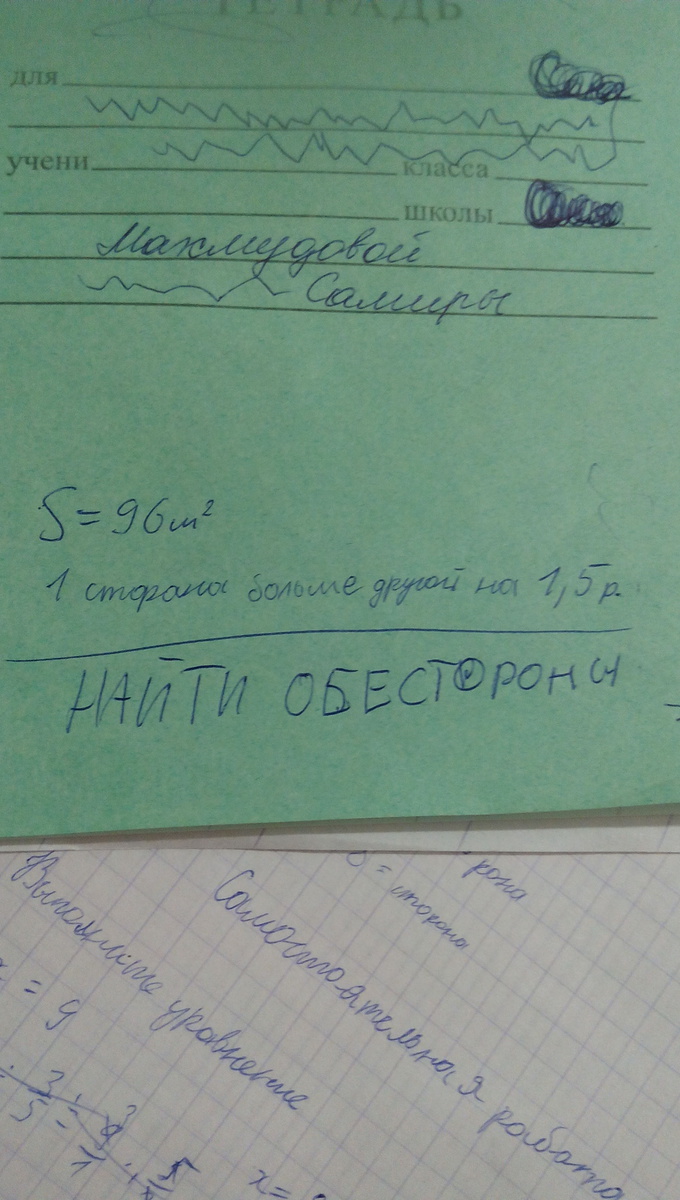 ТЕТРАДЬ
для
учени класса
школы
Махмудовой
Самиры
S = 96 м²
1 сторона больше другой на 1,5 р.
НАЙТИ ОБЕ СТОРОНЫ
рона
стороны
Самостоятельная работа
Выполните уравнение
= 9
3/5 =
x =